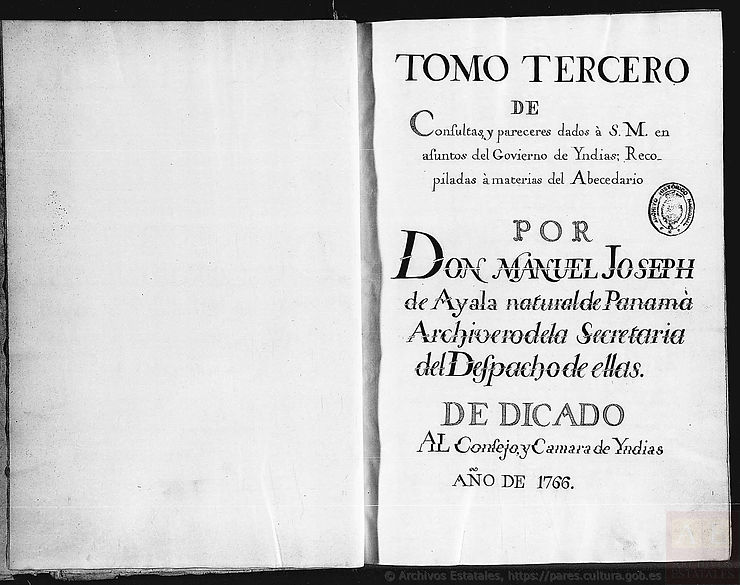 TOMO TERCERO
DE
Consultas, y pareceres dados à S. M. en
asuntos del Govierno de Yndias; Reco-
piladas à materias del Abecedario
POR
DON MANUEL JOSEPH
de Ayala natural de Panamà
Archivero de la Secretaria
del Despacho de ellas.
DE DICADO
AL Consejo, y Camara de Yndias
AÑO DE 1766.
© Archivos Estatales, https://pares.cultura.gob.es